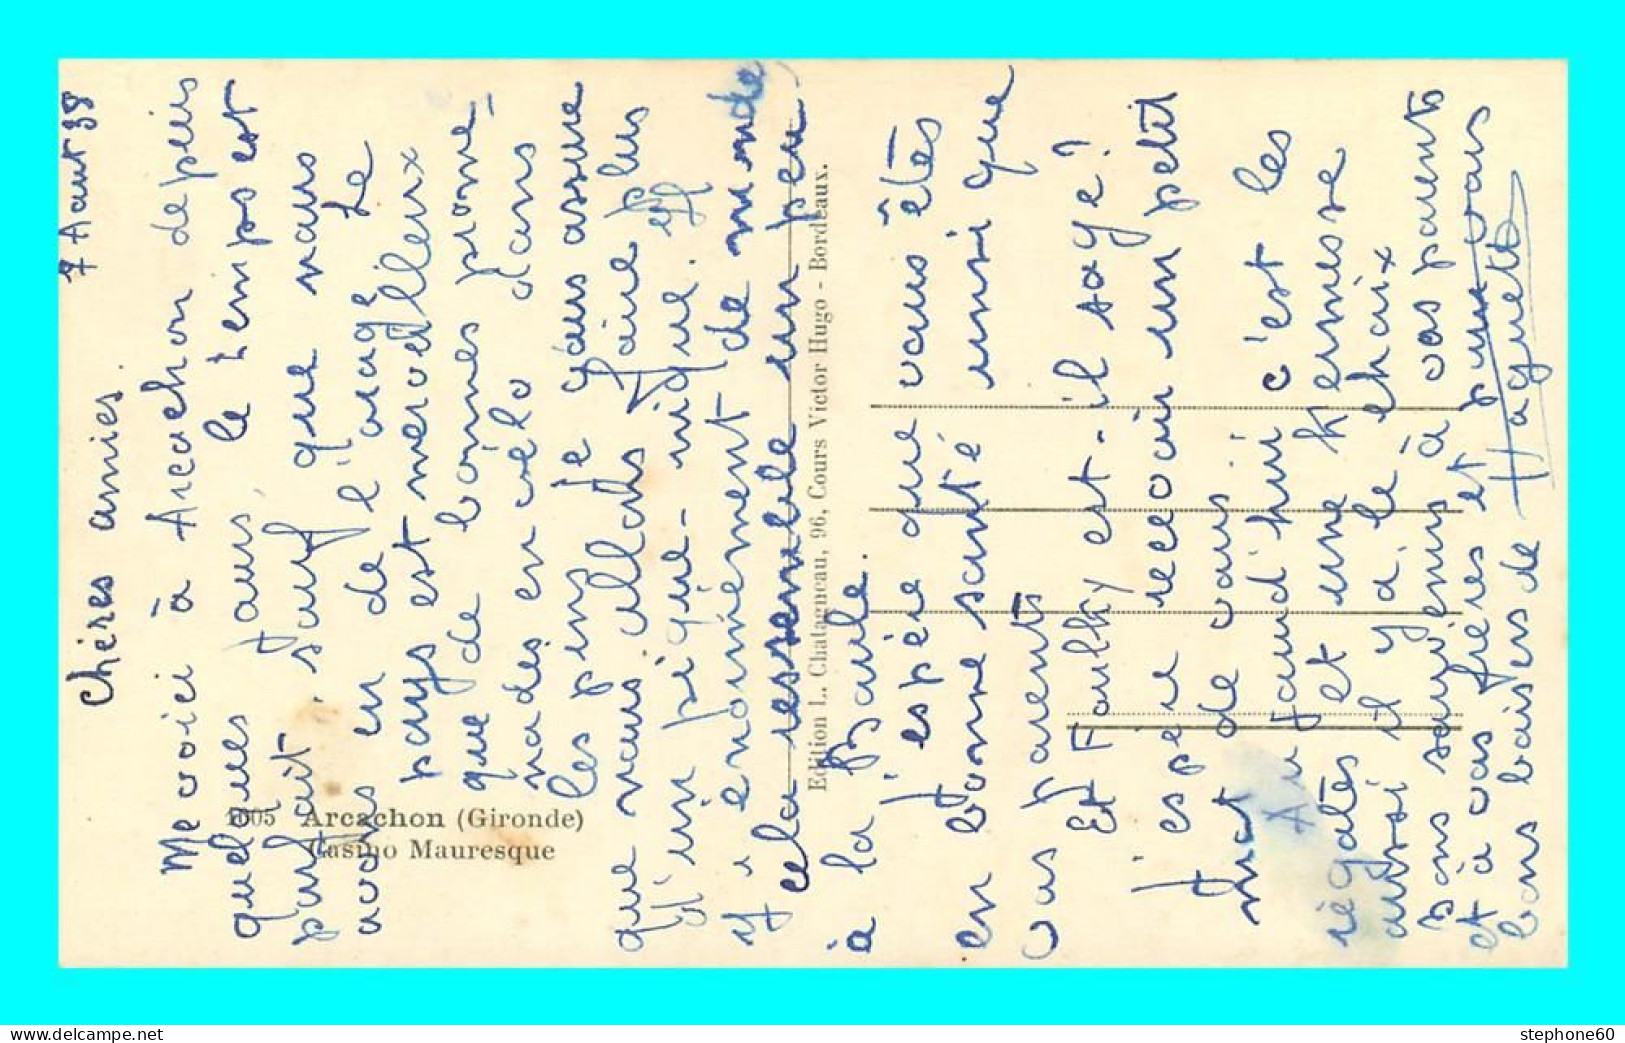 7 Aout 38
Chères amies.
Me voici à Arcachon depuis
quelques jours, le temps est
parfait sauf que nous
avons eu de l'orage Le
pays est merveilleux
que de bonnes prome-
nades en vélo dans
les pins je vous assure
que nous allons faire plus
d'un pique-nique. Il
y a énormément de monde
cela ressemble un peu
à la Baule.
J'espère que vous êtes
en bonne santé ainsi que
vos parents
Et Foulky est-il sage?
j'espère recevoir un petit
mot de vous
Aujourd'hui c'est les
régates et une kermesse
aussi il y a le choix
Bons souvenirs à vos parents
et à vos frères et pour vous
bons baisers de Haguette
1005 Arcachon (Gironde)
Casino Mauresque
Edition L. Chatagneau, 96, Cours Victor Hugo - Bordeaux.
www.delcampe.net
stephone60